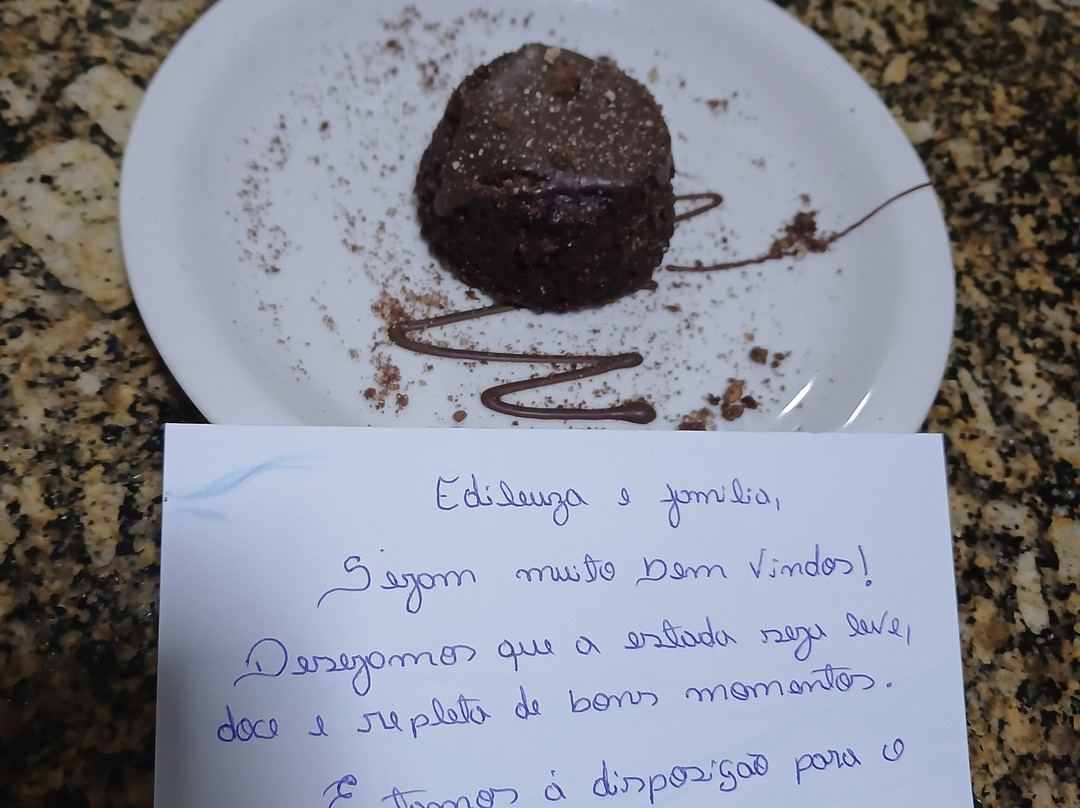 Edileuza e família,
Sejam muito bem vindos!
Desejamos que a estada seja leve,
doce e repleta de bons momentos.
Estamos à disposição para o